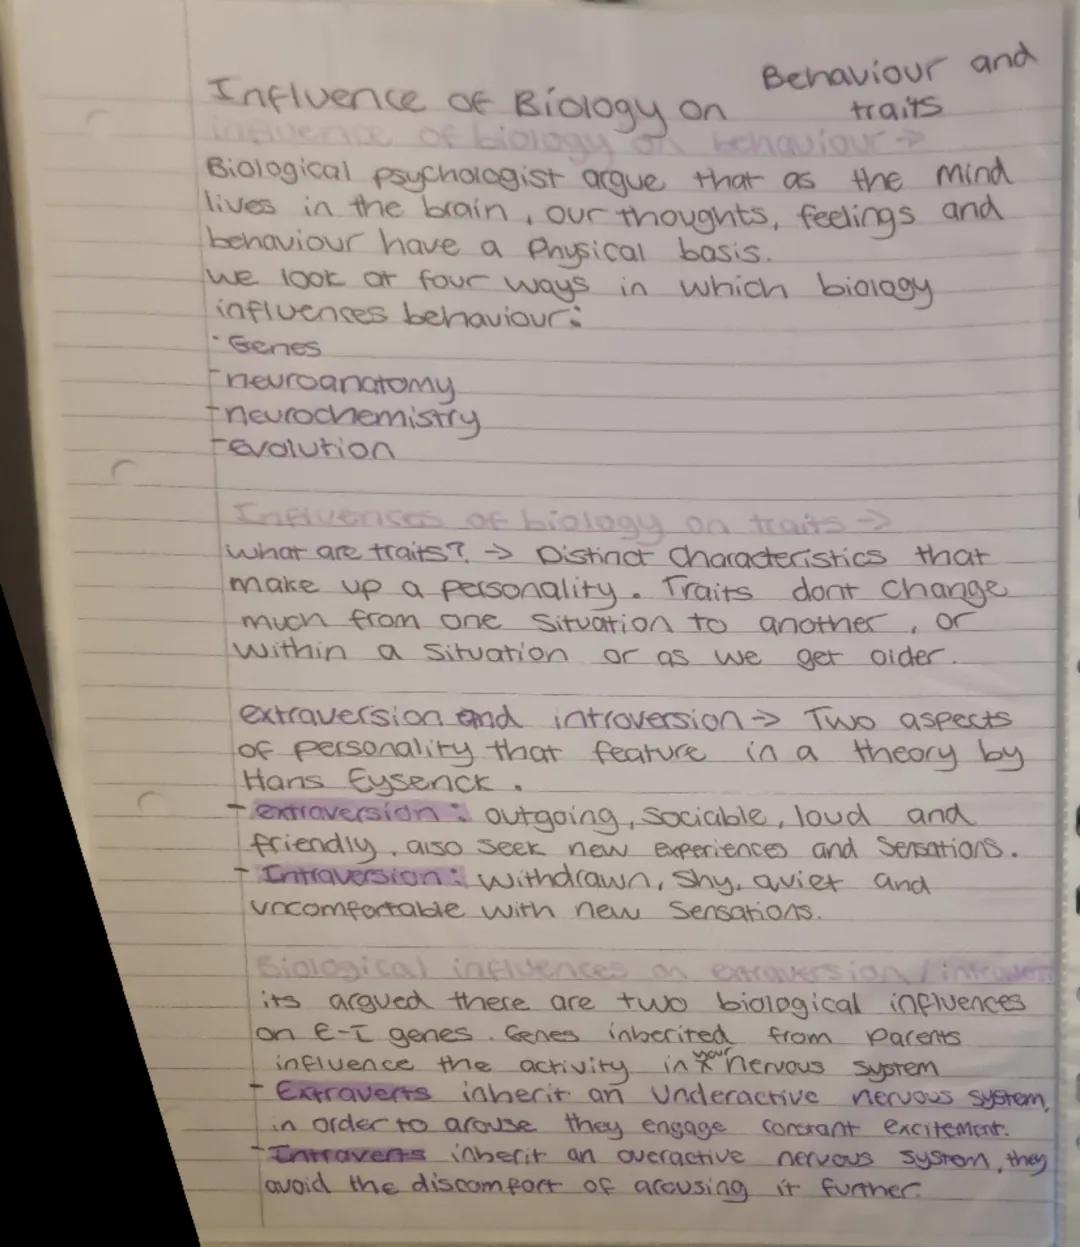 Influence of Biology on Behaviour and traits
influence of biology on behaviour →
Biological psychologist argue that as the mind
lives in the brain, our thoughts, feelings and
behaviour have a Physical basis.
we look at four ways in which biology
influences behaviour:
· Genes
- neuroanatomy
- neurochemistry
- evolution
Influences of biology on traits →
what are traits? → Distinct Characteristics that
make up a personality. Traits dont change
much from one situation to another, or
within a situation or as we get older.
extraversion and introversion → Two aspects
of personality that feature in a theory by
Hans Eysenck.
- extraversion: outgoing, sociable, loud and
friendly, also seek new experiences and sensations.
- Intraversion: withdrawn, shy, quiet and
uncomfortable with new sensations.
Biological influences on extraversion/intraver
its argued there are two biological influences
on E-I genes. Genes inherited from Parents
influence the activity in your nervous system
- Extraverts inherit an Underactive nervous system,
in order to arouse they engage constant excitement.
- Intraverts inherit an overactive nervous system, they
avoid the discomfort of arousing it further.